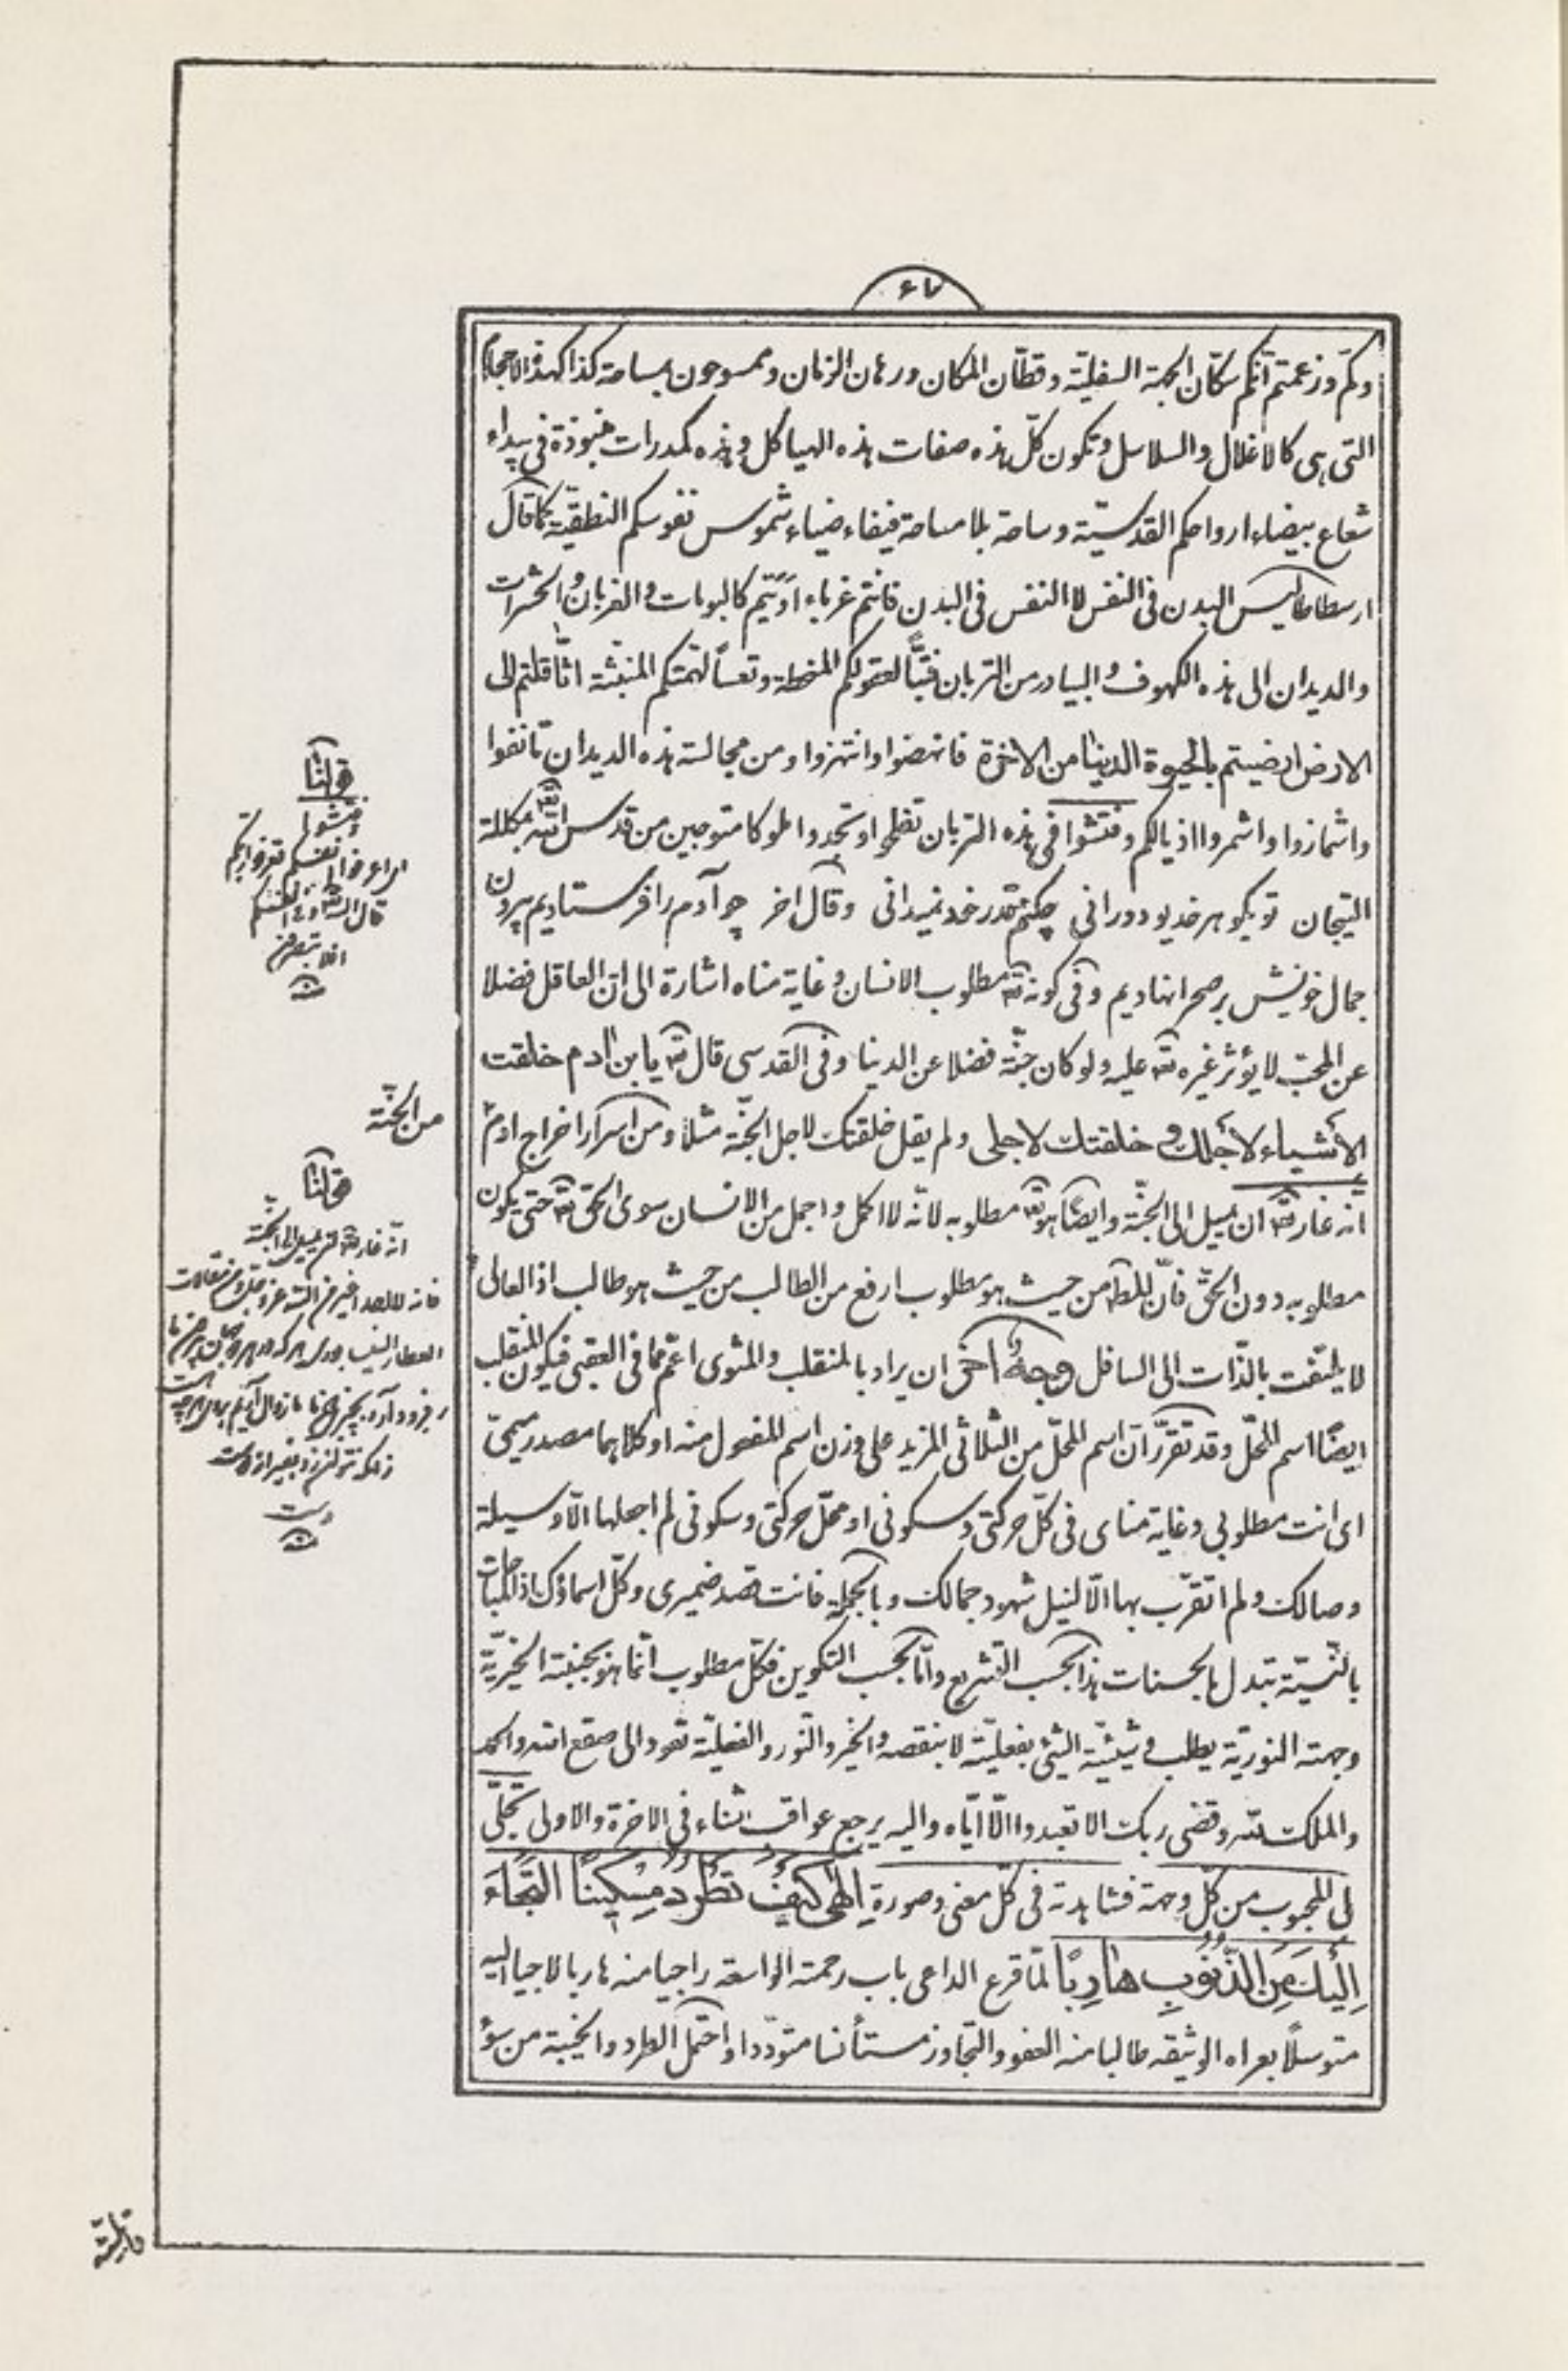 ۶۷
وكم وزعمتم انكم سكّان الجهة السفليّة وقطّان المكان ورهان الزمان وممسوحون بمساحة كذا كهذه الاجسام
التى هى كالاغلال والسلاسل وتكون كلّ هذه صفات هذه الهياكل وهذه كمدرات منبوذة فى بيداء
شعاع بيضاء ارواحكم القدسيّة وساحة بلا مساحة فيفاء ضياء شموس نفوسكم النطقيّة كما قال
ارسطاطاليس البدن فى النفس لا النفس فى البدن فانتم غرباء اويتم كالبومات والغربان والحشرات
والديدان الى هذه الكهوف والبيادر من التربان فتبّا لعقولكم المنحطة وتعسا لهمتكم المنبثّة اثّاقلتم الى
الارض ارضيتم بالحيوة الدنيا من الاخرة فانهضوا وانتهزوا ومن مجالسة هذه الديدان تانفوا
واشمازوا واشمروا اذيالكم وفتّشوا فى هذه التربان تفلحوا وتجدوا ملوكا متوجين من قدس الله مكللة
التيجان تو بگوهر خديو دورانى چكنم قدر خود نميدانى وقال اخر چو آدم را فرستاديم بيرون
جمال خويش بر صحرا نهاديم وفى كونه تعالى مطلوب الانسان وغاية مناه اشارة الى ان العاقل فضلا
عن المحبّ لا يؤثر غيره تعالى عليه ولو كان جنّة فضلا عن الدنيا وفى القدسى قال تعالى يا بن ادم خلقت
الأشياء لأجلك وخلقتك لاجلى ولم يقل خلقتك لاجل الجنّة مثلا ومن اسرار اخراج ادم
انه غار تعالى ان يميل الى الجنّة وايضا هو تعالى مطلوبه لانّه لا اكمل واجمل من الانسان سوى الحق تعالى حتى يكون
مطلوبه دون الحقّ فانّ المطلوب من حيث هو مطلوب ارفع من الطالب من حيث هو طالب اذ العالى
لا يلتفت بالذّات الى السافل وجهٌ اخر ان يراد بالمنقلب والمثوى اعمّ مما فى العقبى فيكون المنقلب
ايضا اسم المحلّ وقد تقرّر ان اسم المحلّ من الثلاثى المزيد على وزن اسم المفعول منه او كلاهما مصدر ميمىّ
اى انت مطلوبى وغاية مناى فى كلّ حركتى وسكونى او محلّ حركتى وسكونى لم اجعلها الّا وسيلة
وصالك ولم اتقرّب بها الّا لنيل شهود جمالك وبالجملة فانت قصد ضميرى وكلّ اسماؤك اذ المباحات
بالنيّة تبدل بالحسنات هذا بحسب التشريع وامّا بحسب التكوين فكلّ مطلوب انّما هو بجنبته الخيريّة
وجهته النوريّة يطلب وشيئيّة الشئ بفعليّته لا بنقصه والخير والنّور والفعليّة تعود الى صقع الله والحمد
والملك لله وقضى ربك الا تعبدوا الّا ايّاه واليه يرجع عواقب الثناء فى الاخرة والاولى تجلّى
لى المحبوب من كلّ وجهة فشاهدته فى كلّ معنى وصورة إلهى كيف تطرد مسكينا التجاء
إليك من الذّنوب هاربا لمّا قرع الداعى باب رحمته الواسعة راجيا منه هاربا لاجيا اليه
متوسلا بعراه الوثيقه طالبا منه العفو والتجاوز مستأنسا متودّدا واحتمل الطرد والخيبة من سوء
قولنا
وفتشوا
اى اعرفوا انفسكم تعرفوا ربكم
قال الله تعالى وفى انفسكم
افلا تبصرون
من الجنّة
قولنا
انّه غار تعالى ان يميل الى الجنّة
العطار
دست